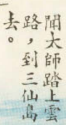 聞太師踏上雲
路，到三仙島
去。